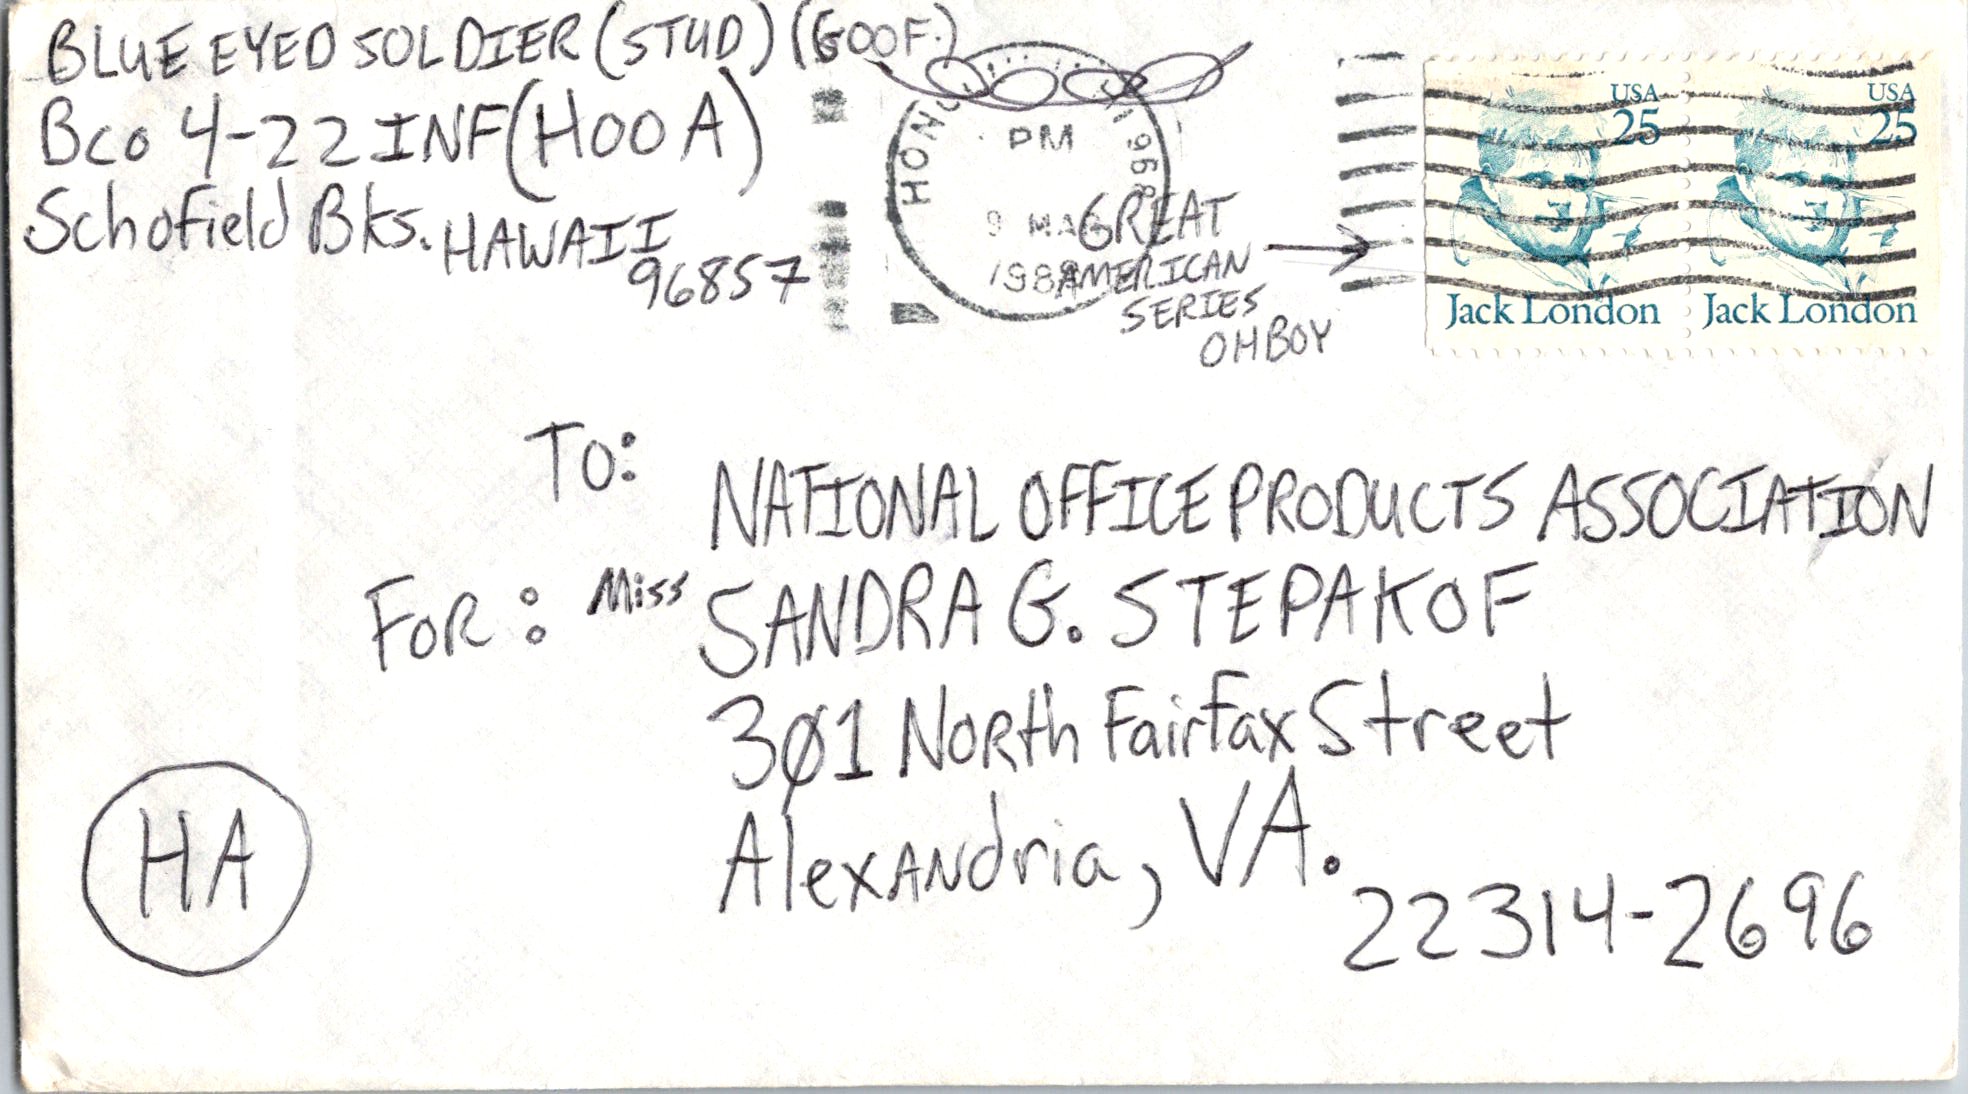 BLUE EYED SOLDIER (STUD) (GOOF.)
Bco 4-22 INF (HOO A)
Schofield Bks. HAWAII
96857
HON
PM
968
9 MA
198
GREAT
AMERICAN
SERIES
OH BOY
USA
25
Jack London
USA
25
Jack London
To:
NATIONAL OFFICE PRODUCTS ASSOCIATION
FOR: Miss SANDRA G. STEPAKOF
3Ø1 North Fairfax Street
Alexandria, VA.
22314-2696
HA